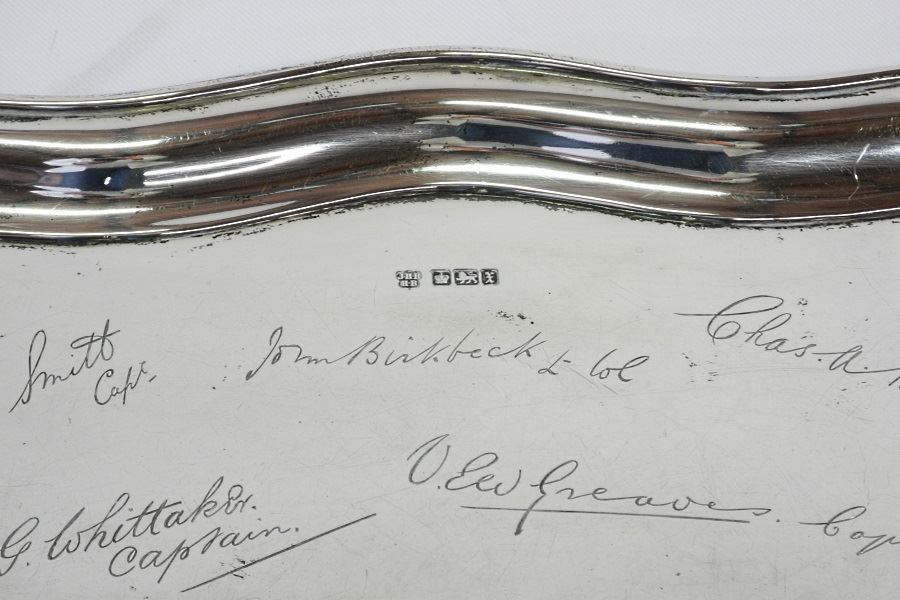 Smith
Capt.
John Birkbeck Lt Col
Chas. A.
G. Whittaker.
Captain.
Greaves. Cap